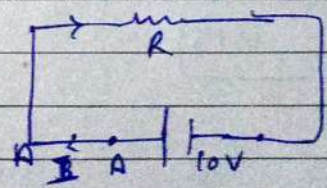 R
A I A 10V